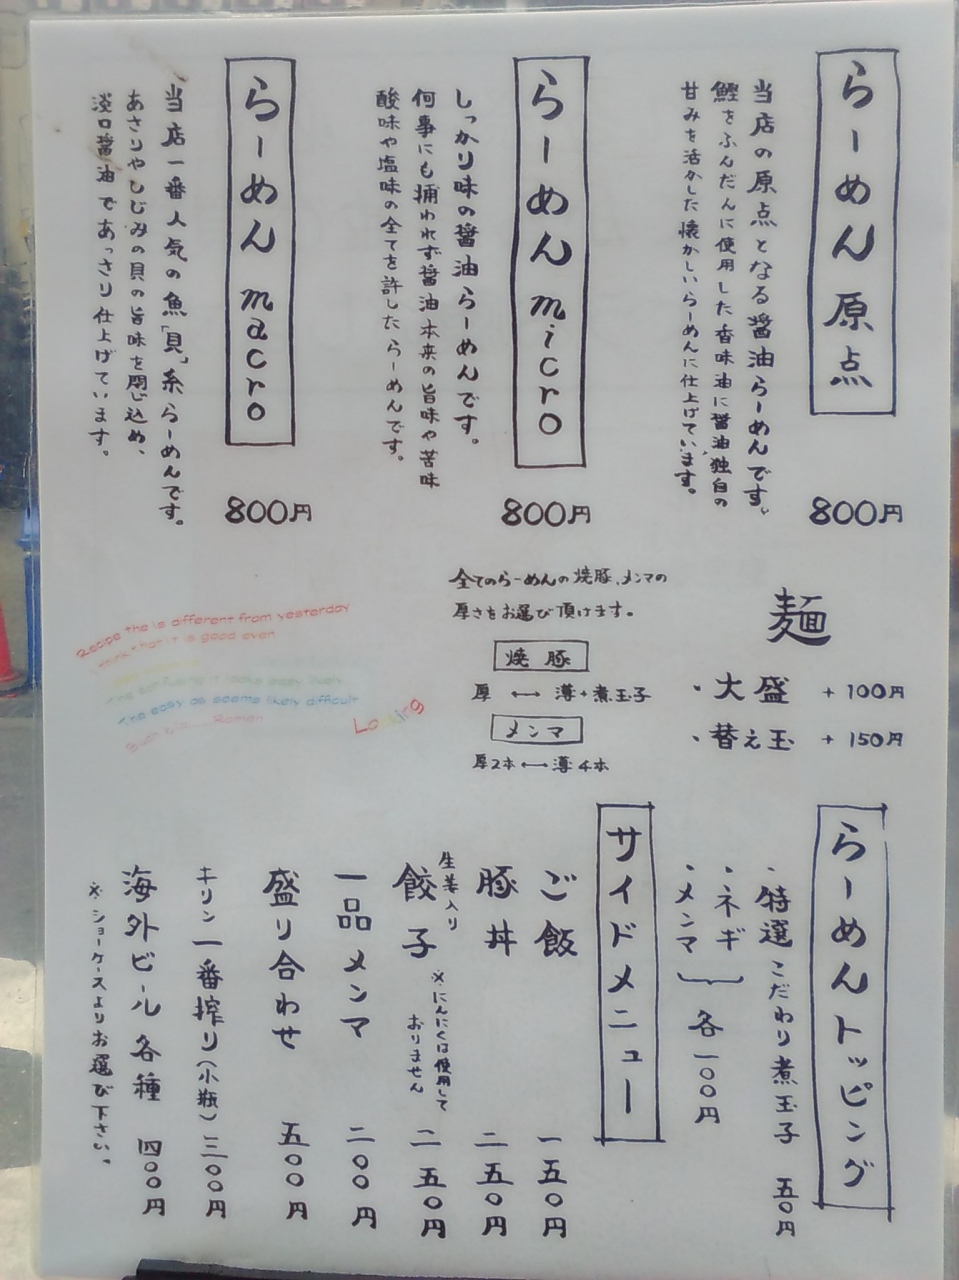 らーめん 原点
当店の原点となる醤油らーめんです。
鰹をふんだんに使用した香味油に醤油独自の
甘みを活かした懐かしいらーめんに仕上げています。
800円
らーめん micro
しっかり味の醤油らーめんです。
何事にも捕われず醤油本来の旨味や苦味
酸味や塩味の全てを許したらーめんです。
800円
らーめん macro
当店一番人気の魚「貝」系らーめんです。
あさりやしじみの貝の旨味を閉じ込め、
淡口醤油であっさり仕上げています。
800円
麺
・大盛 +100円
・替え玉 +150円
全てのらーめんの焼豚、メンマの
厚さをお選び頂けます。
焼豚
厚 ⟷ 薄+煮玉子
メンマ
厚2本 ⟷ 薄4本
Recipe the is different from yesterday
think that it is good even
The easy as seems likely difficult
Looking
らーめんトッピング
・特選こだわり煮玉子 五〇円
・ネギ
・メンマ
各一〇〇円
サイドメニュー
ご飯 一五〇円
豚丼 二五〇円
生姜入り
餃子 二五〇円
※にんにくは使用して
おりません
一品メンマ 二〇〇円
盛り合わせ 五〇〇円
キリン一番搾り(小瓶) 三〇〇円
海外ビール各種 四〇〇円
※ショーケースよりお選び下さい。